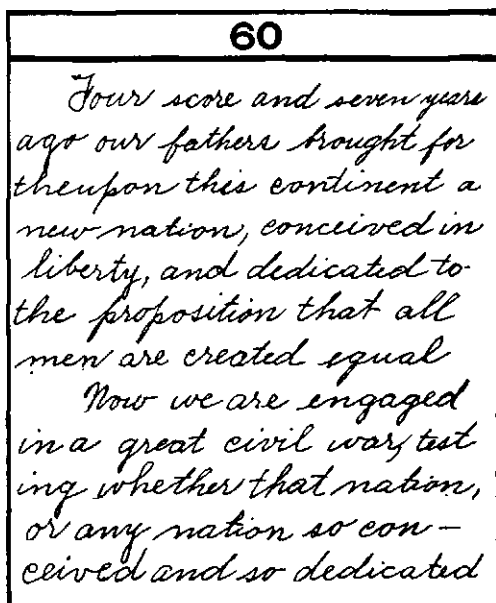 60
Four score and seven years
ago our fathers brought for
theupon this continent a
new nation, conceived in
liberty, and dedicated to
the proposition that all
men are created equal
Now we are engaged
in a great civil war, test
ing whether that nation,
or any nation so con-
ceived and so dedicated